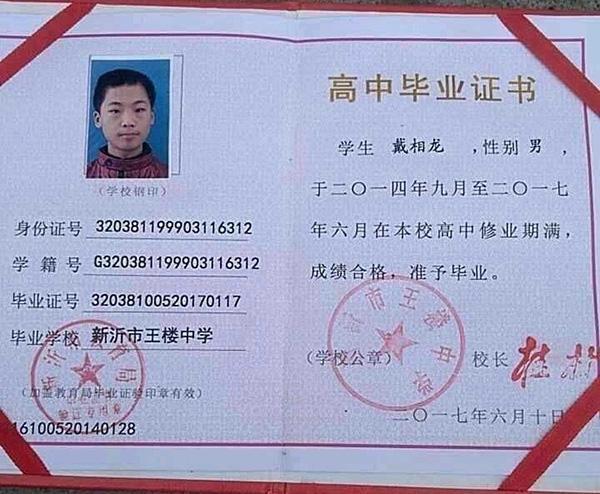 （学校钢印）
身份证号 320381199903116312
学籍号 G320381199903116312
毕业证号 32038100520170117
毕业学校 新沂市王楼中学
（加盖教育局毕业证验印章有效）
16100520140128
高中毕业证书
学生 戴相龙 ，性别 男 ，
于二〇一四年九月至二〇一七
年六月在本校高中修业期满，
成绩合格，准予毕业。
（学校公章） 校长
二〇一七年六月十日
新沂市王楼中学